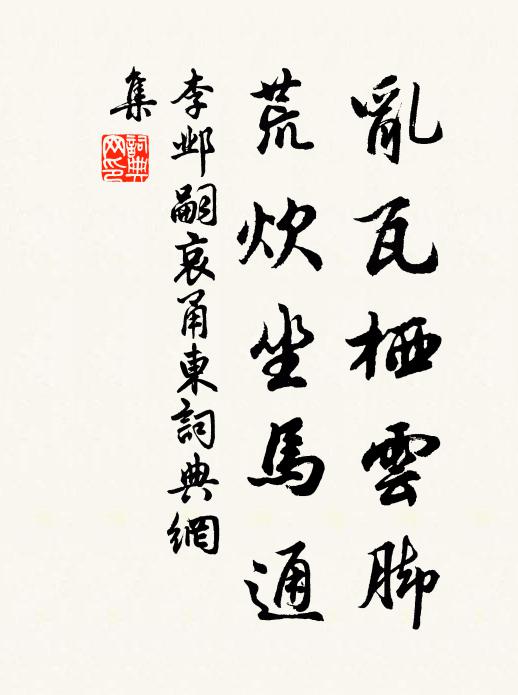 亂瓦栖雲脚
荒炊坐馬通
李鄴嗣哀甬東詞典網
集
詞典
网印